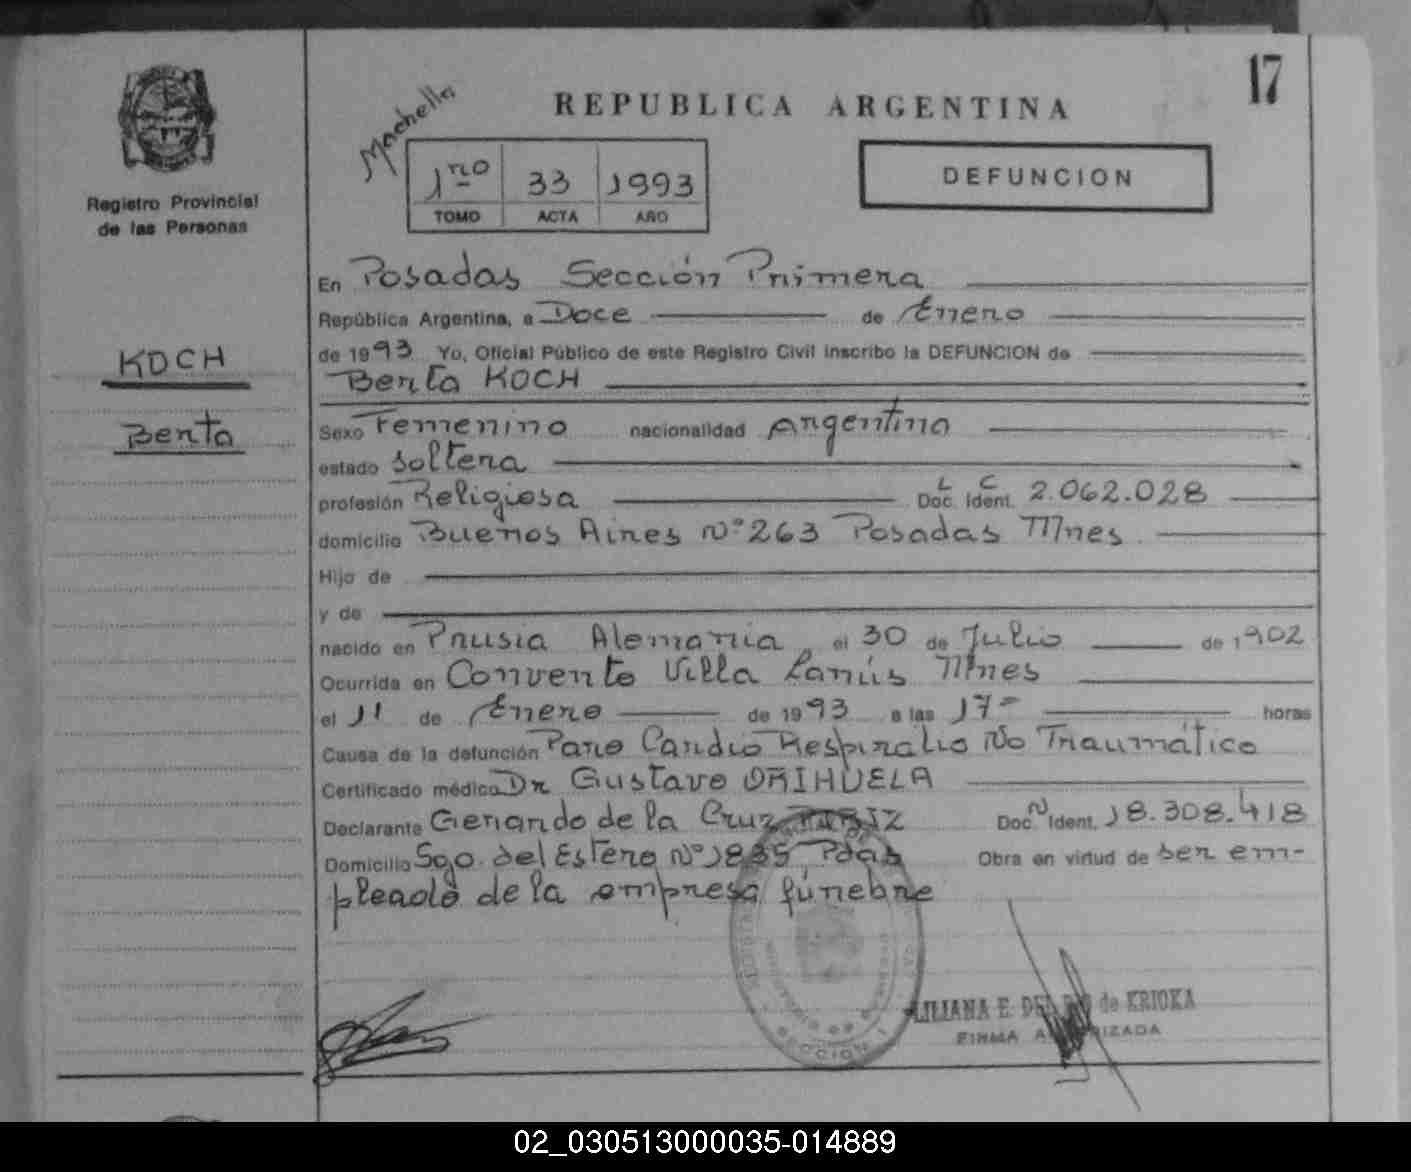 17
Machella
REPUBLICA ARGENTINA
1no 33 1993
TOMO ACTA AÑO
DEFUNCION
Registro Provincial
de las Personas
KOCH
Berta
En Posadas Sección Primera
República Argentina, a Doce de Enero
de 1993 Yo, Oficial Público de este Registro Civil inscribo la DEFUNCION de
Berta KOCH
Sexo Femenino nacionalidad argentina
estado soltera
profesión Religiosa Doc. Ident. L C 2.062.028
domicilio Buenos Aires Nº 263 Posadas Mnes
Hijo de
y de
nacido en Prusia Alemania el 30 de Julio de 1902
Ocurrida en Convento Villa Lanús Mnes
el 11 de Enero de 1993 a las 17- horas
Causa de la defunción Paro Cardio Respiratio No Traumático
Certificado médico Dr Gustavo ORIHUELA
Declarante Gerardo de la Cruz Doc. N Ident. 18.308.418
Domicilio Sgo. del Estero Nº 1835 Pdas Obra en virtud de ser em-
pleado de la empresa fúnebre
SECCION 1
LILIANA E. DEL de KRIOKA
FIRMA AUTORIZADA
02_030513000035-014889